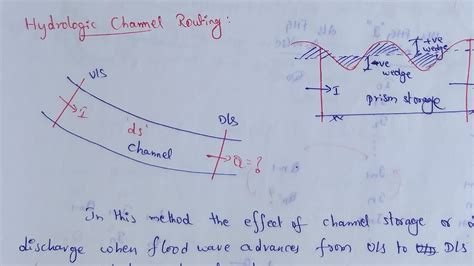 Hydrologic Channel Routing:
+ve
wedge
-ve
wedge
U/S
I
'ds'
channel
D/S
Q = ?
I
prism storage
In this method the effect of channel storage or
discharge when flood wave advances from U/S to D/S